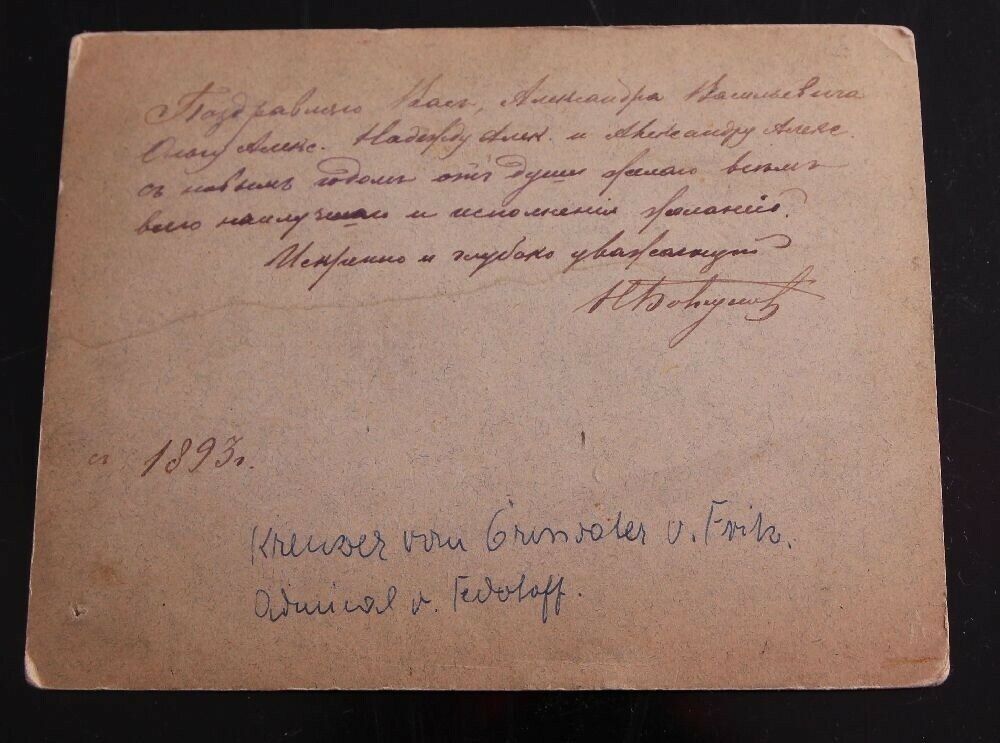 Поздравляю Васъ, Александра Васильевича
Ольгу Алекс. Надежду Алек. и Александру Алекс.
съ новымъ годомъ отъ души желаю всемъ
всего наилучшаго и исполненія желаній.
Искренно и глубоко уважающій
1893г.
Kreuzer von Grossvater v. Fritz.
Admiral v. Fedotoff.